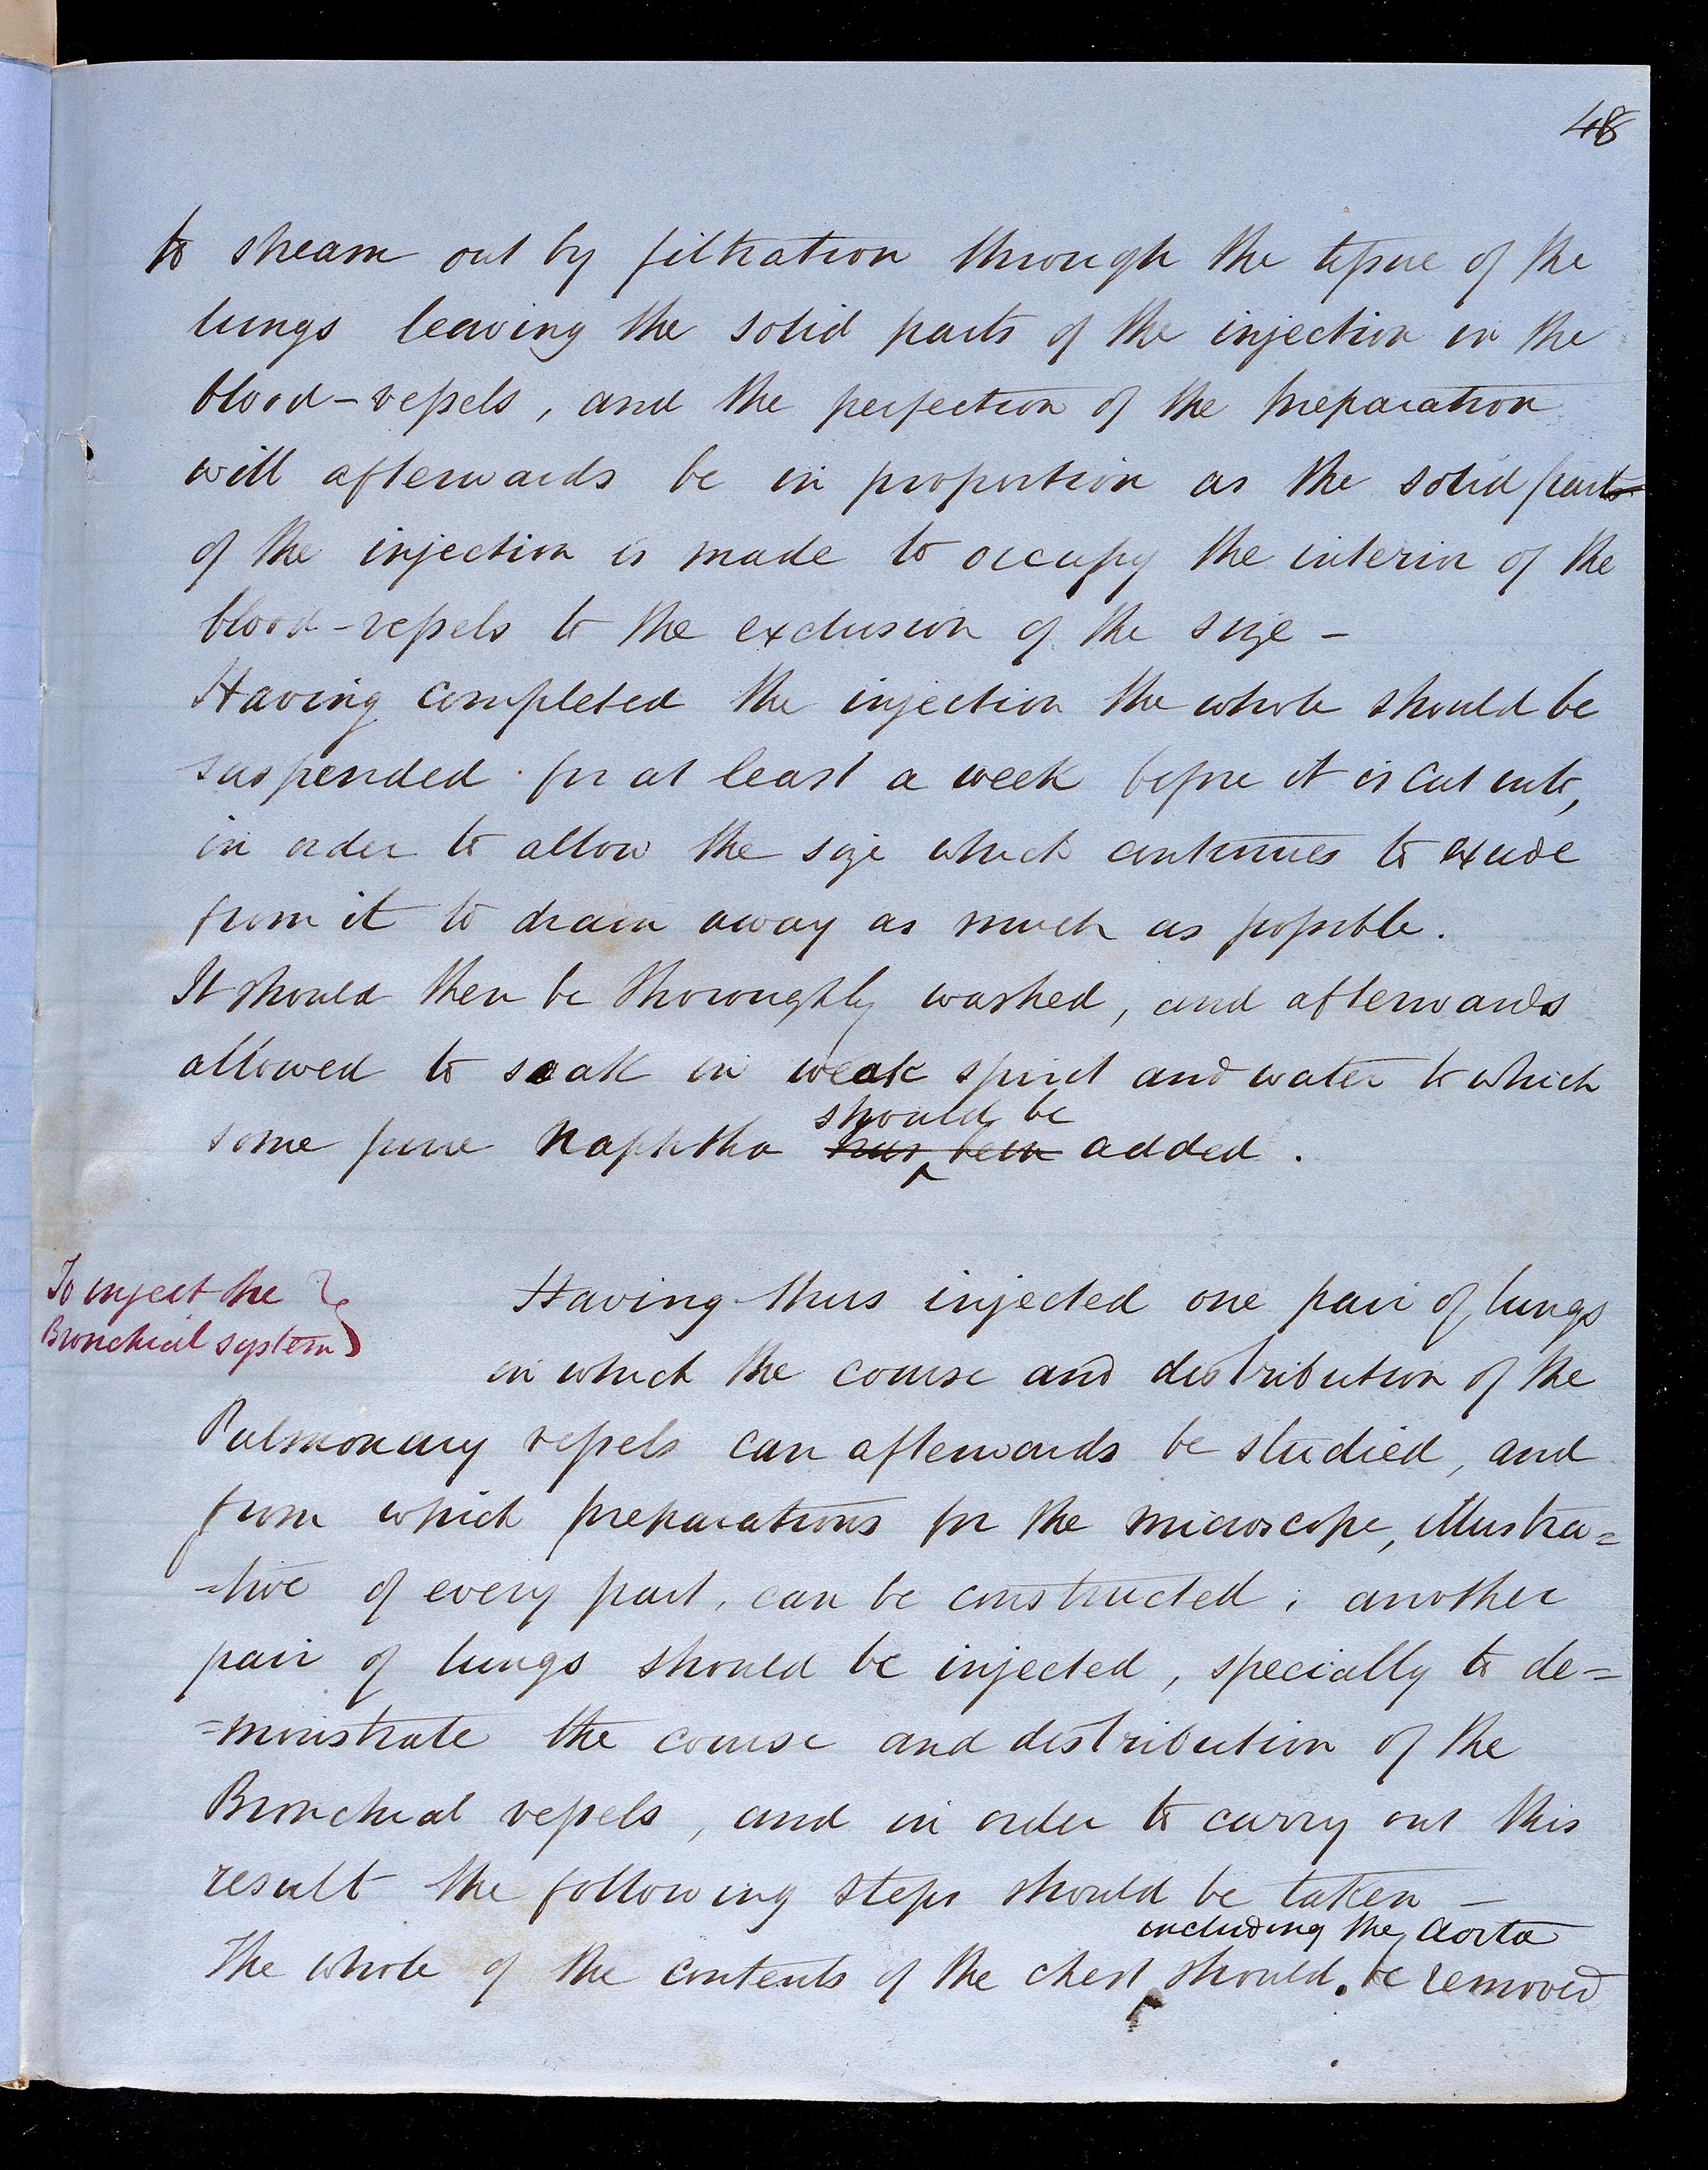 48
to stream out by filtration through the tissue of the
lungs leaving the solid parts of the injection in the
blood-vessels, and the perfection of the preparation
will afterwards be in proportion as the solid parts
of the injection is made to occupy the interior of the
blood-vessels to the exclusion of the size –
Having completed the injection the whole should be
suspended for at least a week before it is cut into,
in order to allow the size which continues to exude
from it to drain away as much as possible.
It should then be thoroughly washed, and afterwards
allowed to soak in weak spirit and water to which
should be
some pure Naphtha has been added.
To inject the
Bronchial system
Having thus injected one pair of lungs
in which the course and distribution of the
Pulmonary vessels can afterwards be studied, and
from which preparations for the microscope, illustra=
=tive of every part, can be constructed; another
pair of lungs should be injected, specially to de=
=monstrate the course and distribution of the
Bronchial vessels, and in order to carry out this
result the following steps should be taken –
including the Aorta
The whole of the contents of the chest should be removed